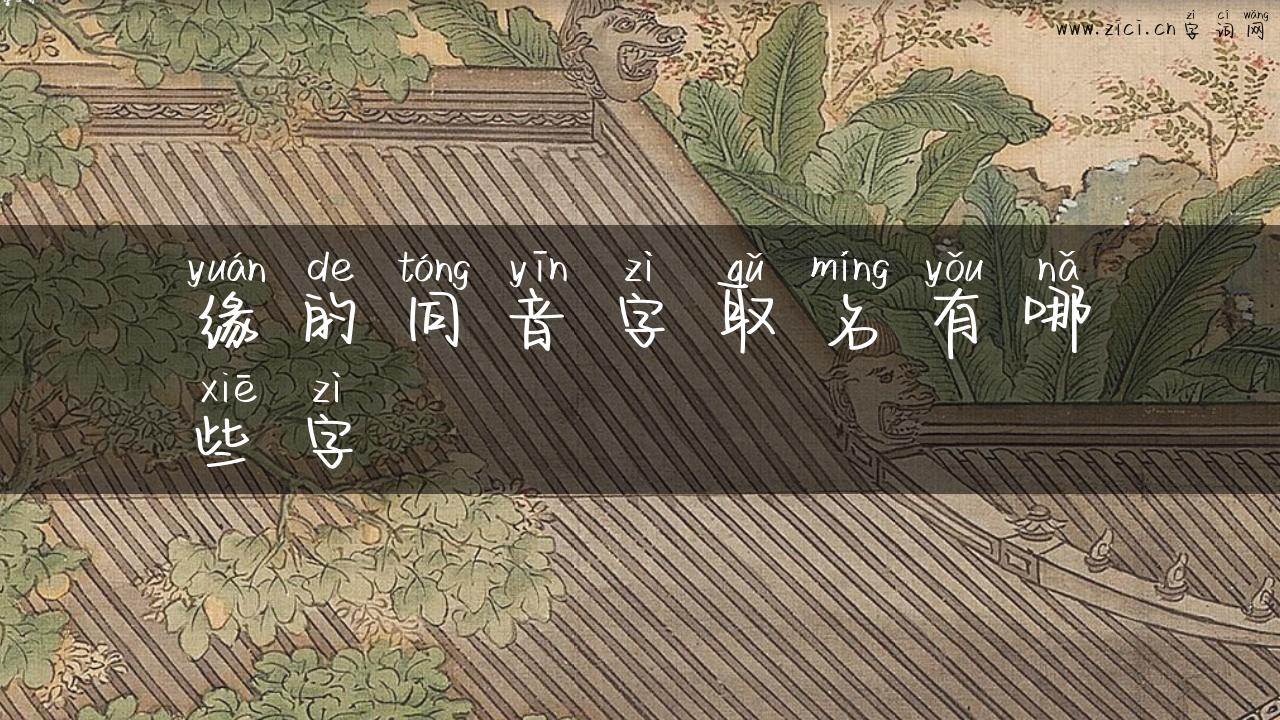 zì cí wǎng
www.zici.cn 字 词 网
yuán de tóng yīn zì qǔ míng yǒu nǎ
缘 的 同 音 字 取 名 有 哪
xiē zì
些 字